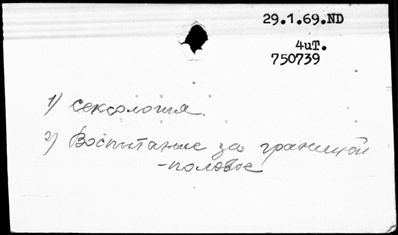 29.1.69.ND
4иТ.
750739
1) сексология.
2) Воспитание за границей
-половое